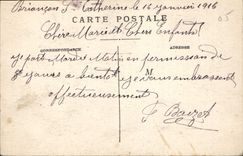 Briançon Ste Catherine le 16 Janvier 1916
CARTE POSTALE
Chère Marie et Chers Enfants
CORRESPONDANCE
ADRESSE
je part Mardi Matin en permission de
jours a bientôt je vous embrassent
affectueusement